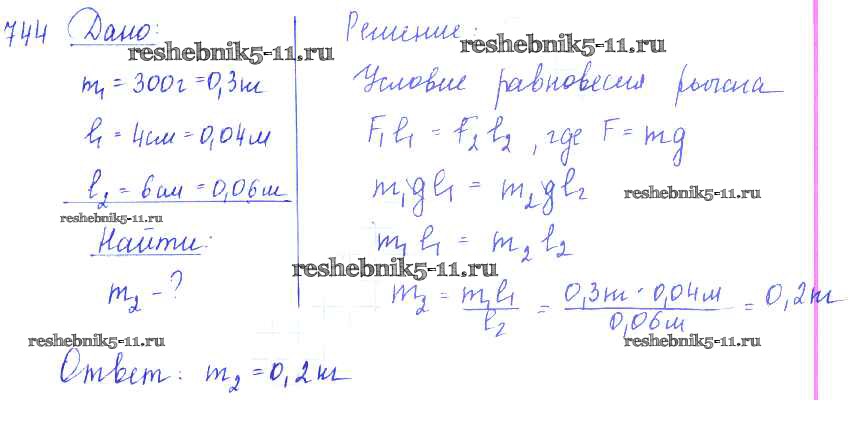 744 Дано:
reshebnik5-11.ru
m₁ = 300г = 0,3кг
l₁ = 4см = 0,04м
l₂ = 6см = 0,06м
reshebnik5-11.ru
Найти:
m₂ - ?
reshebnik5-11.ru
Решение:
reshebnik5-11.ru
Условие равновесия рычага
F₁l₁ = F₂l₂, где F = mg
m₁gl₁ = m₂gl₂
reshebnik5-11.ru
m₁l₁ = m₂l₂
reshebnik5-11.ru
m₂ = m₁l₁/l₂ = 0,3кг · 0,04м/0,06м = 0,2кг
reshebnik5-11.ru
Ответ: m₂ = 0,2кг